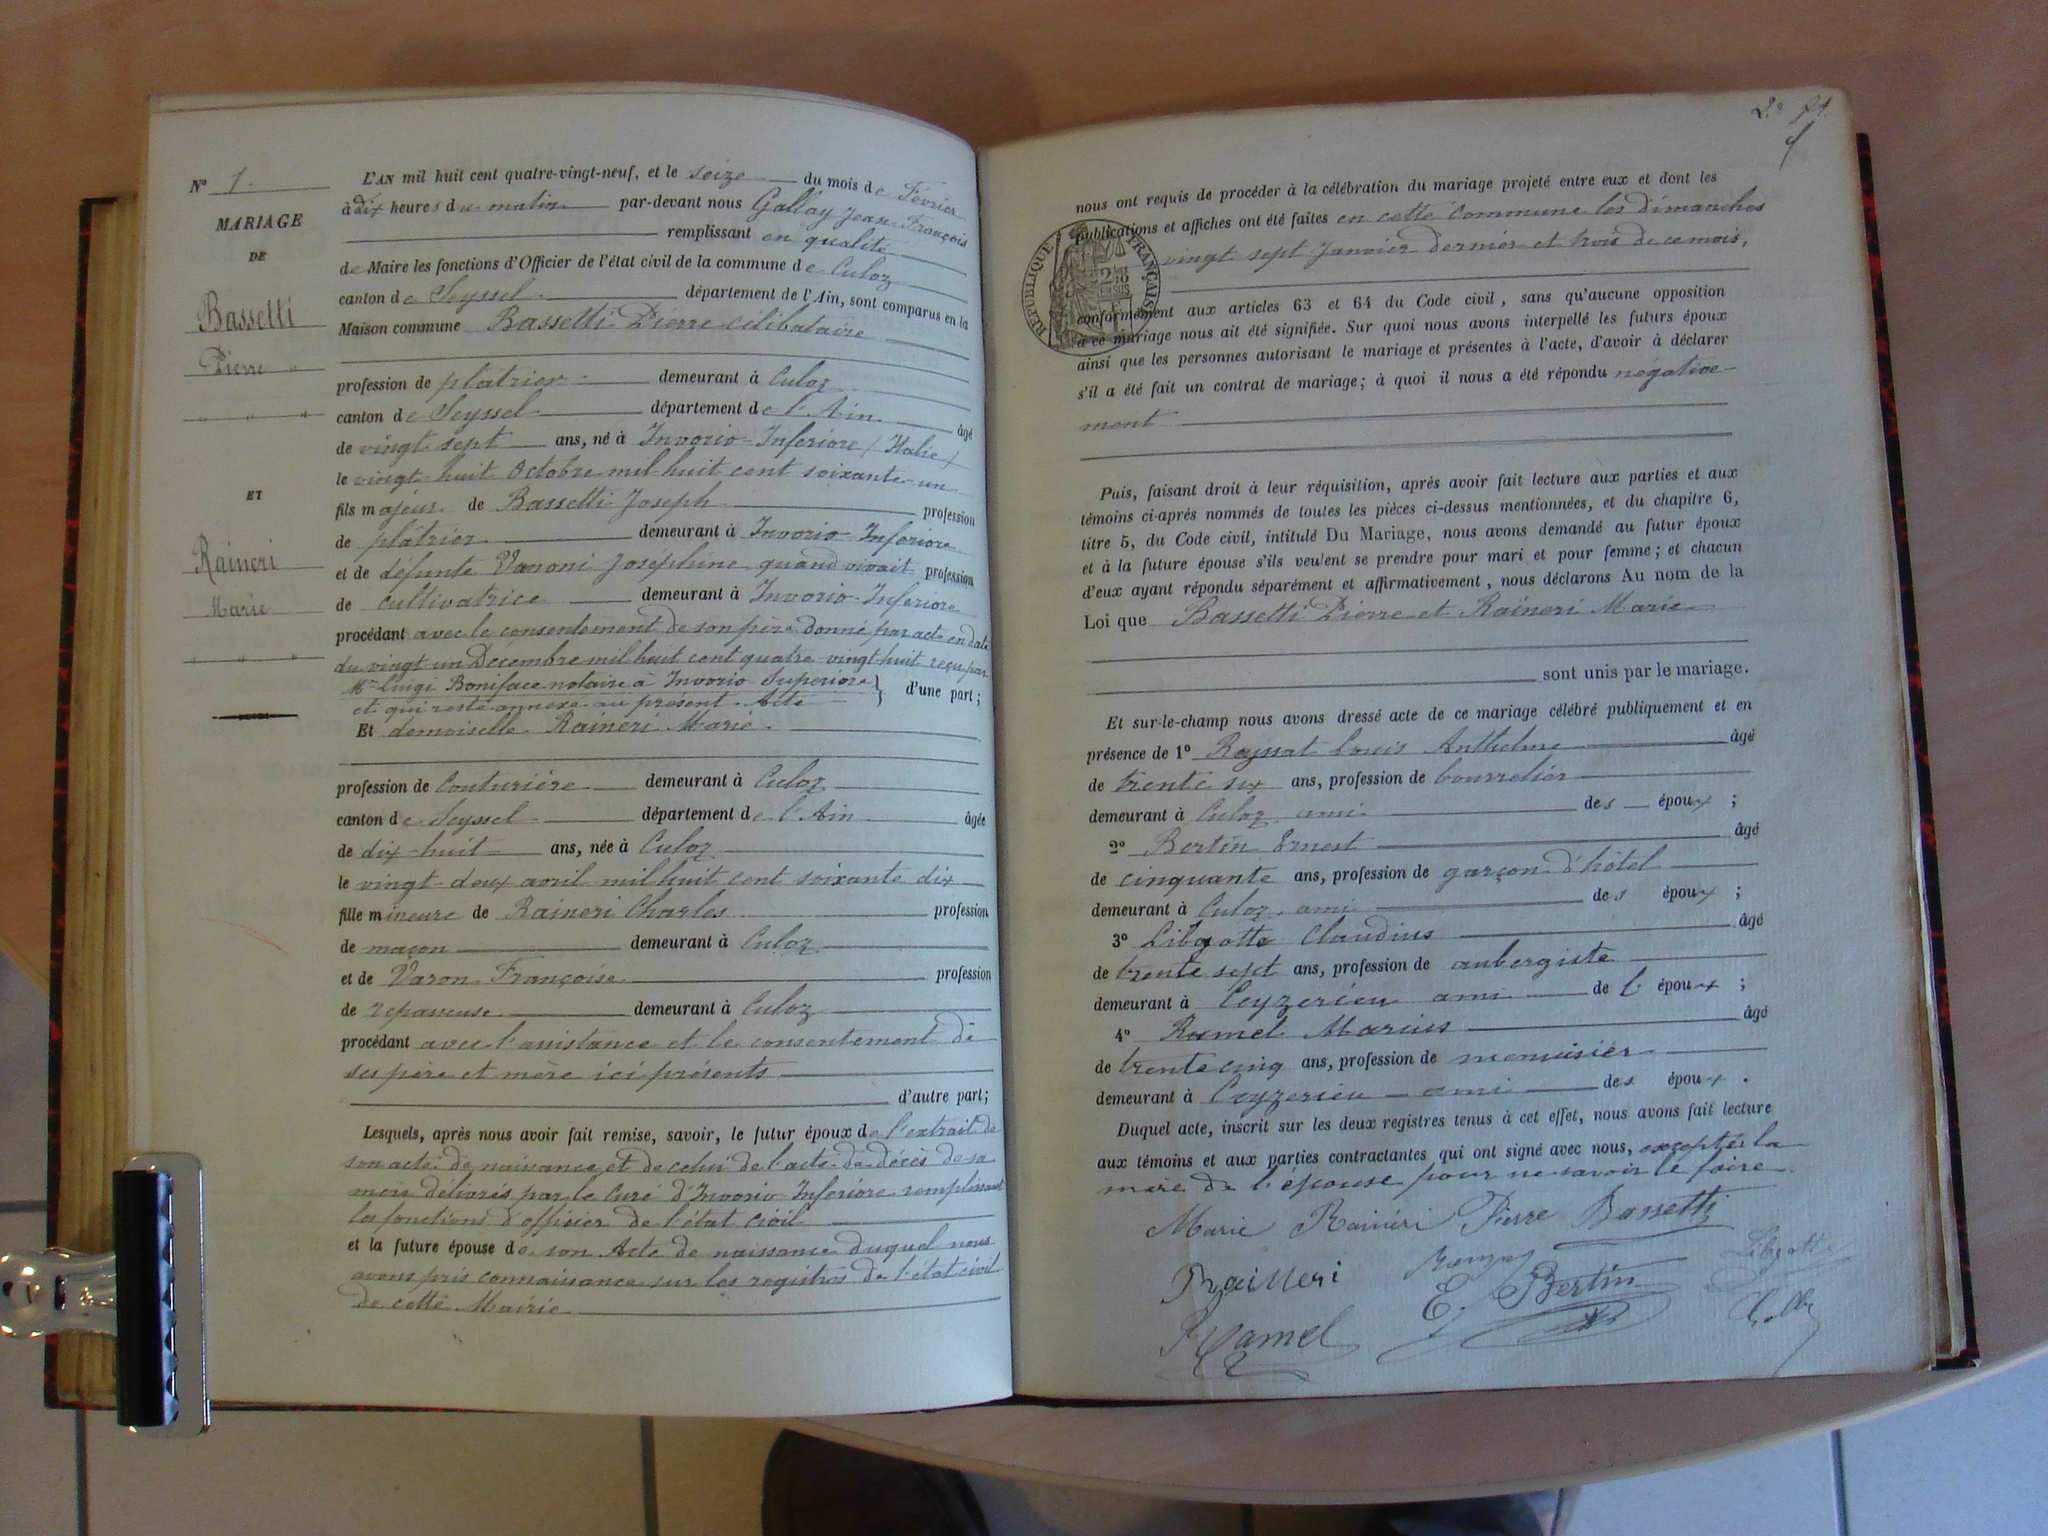 N° 1.
MARIAGE
DE
Bassetti
Pierre
ET
Raineri
Marie
L'AN mil huit cent quatre-vingt-neuf, et le seize du mois de Février
à dix heures du matin par-devant nous Gallay Jean François
remplissant en qualité
de Maire les fonctions d'Officier de l'état civil de la commune de Culoz
canton de Seyssel département de l'Ain, sont comparus en la
Maison commune Bassetti Pierre célibataire
profession de plâtrier demeurant à Culoz
canton de Seyssel département de l'Ain âgé
de vingt sept ans, né à Invorio-Inferiore (Italie)
le vingt-huit Octobre mil huit cent soixante-un
fils majeur de Bassetti Joseph profession
de plâtrier demeurant à Invorio Inferiore
et de défunte Vanoni Joséphine quand vivait profession
de cultivatrice demeurant à Invorio-Inferiore
procédant avec le consentement de son père donné par acte en date
du vingt-un Décembre mil huit cent quatre-vingt-huit reçu par
Mre Luigi Boniface notaire à Invorio Superiore
et qui reste annexé au présent Acte } d'une part;
Et demoiselle Raineri Marie.
profession de Couturière demeurant à Culoz
canton de Seyssel département de l'Ain âgée
de dix-huit ans, née à Culoz
le vingt-deux avril mil huit cent soixante dix
fille mineure de Raineri Charles profession
de maçon demeurant à Culoz
et de Varon Françoise profession
de repasseuse demeurant à Culoz
procédant avec l'assistance et le consentement de
ses père et mère ici présents
d'autre part;
Lesquels, après nous avoir fait remise, savoir, le futur époux de l'extrait de
son acte de naissance et de celui de l'acte de décès de sa
mère délivrés par le Curé d'Invorio-Inferiore remplissant
les fonctions d'officier de l'état civil
et la future épouse de son Acte de naissance duquel nous
avons pris connaissance sur les registres de l'état civil
de cette Mairie
nous ont requis de procéder à la célébration du mariage projeté entre eux et dont les
publications et affiches ont été faites en cette Commune les dimanches
vingt sept Janvier dernier et trois de ce mois,
RÉPUBLIQUE FRANÇAISE
conformément aux articles 63 et 64 du Code civil, sans qu'aucune opposition
à ce mariage nous ait été signifiée. Sur quoi nous avons interpellé les futurs époux
ainsi que les personnes autorisant le mariage et présentes à l'acte, d'avoir à déclarer
s'il a été fait un contrat de mariage; à quoi il nous a été répondu négative-
ment
Puis, faisant droit à leur réquisition, après avoir fait lecture aux parties et aux
témoins ci-après nommés de toutes les pièces ci-dessus mentionnées, et du chapitre 6,
titre 5, du Code civil, intitulé Du Mariage, nous avons demandé au futur époux
et à la future épouse s'ils veulent se prendre pour mari et pour femme; et chacun
d'eux ayant répondu séparément et affirmativement, nous déclarons Au nom de la
Loi que Bassetti Pierre et Raineri Marie
sont unis par le mariage.
Et sur-le-champ nous avons dressé acte de ce mariage célébré publiquement et en
présence de 1° Louis Anthelme âgé
de trente six ans, profession de bourrelier
demeurant à Culoz ami des époux;
2° Bertin Ernest âgé
de cinquante ans, profession de garçon d'hôtel
demeurant à Culoz ami des époux;
3° Claudius âgé
de trente sept ans, profession de aubergiste
demeurant à Ceyzerieu ami de l'époux;
4° Ramel Marius âgé
de trente cinq ans, profession de menuisier
demeurant à Ceyzerieu ami des époux.
Duquel acte, inscrit sur les deux registres tenus à cet effet, nous avons fait lecture
aux témoins et aux parties contractantes qui ont signé avec nous, exceptés la
mère de l'épouse pour ne savoir le faire.
Marie Rainéri Pierre Bassetti
E. Bertin
Ramel